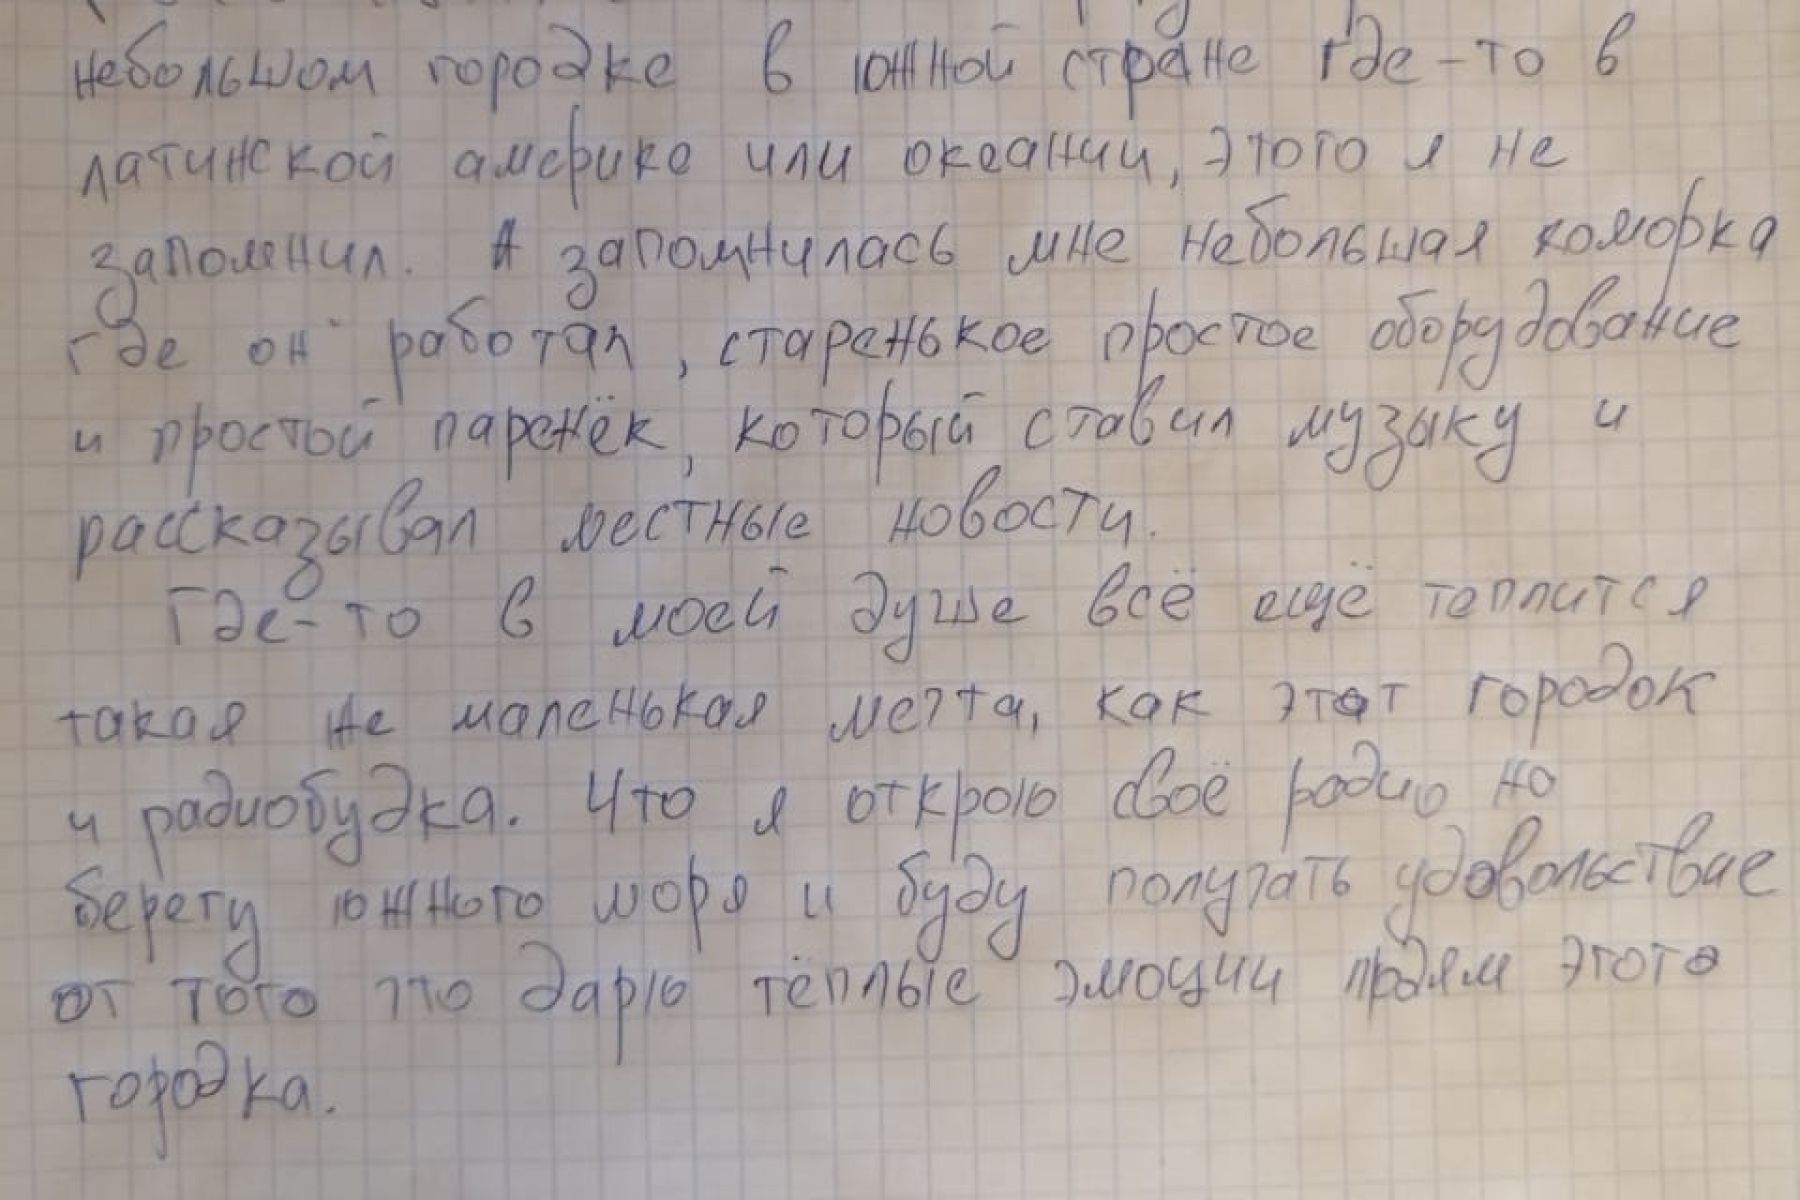 небольшом городке в южной стране где-то в
латинской америке или океании, этого я не
запомнил. А запомнилась мне небольшая коморка
где он работал, старенькое простое оборудование
и простой паренёк, который ставил музыку и
рассказывал местные новости.
Где-то в моей душе всё ещё теплится
такая не маленькая мечта, как этот городок
и радиобудка. Что я открою своё радио на
берегу южного моря и буду получать удовольствие
от того что дарю тёплые эмоции людям этого
городка.